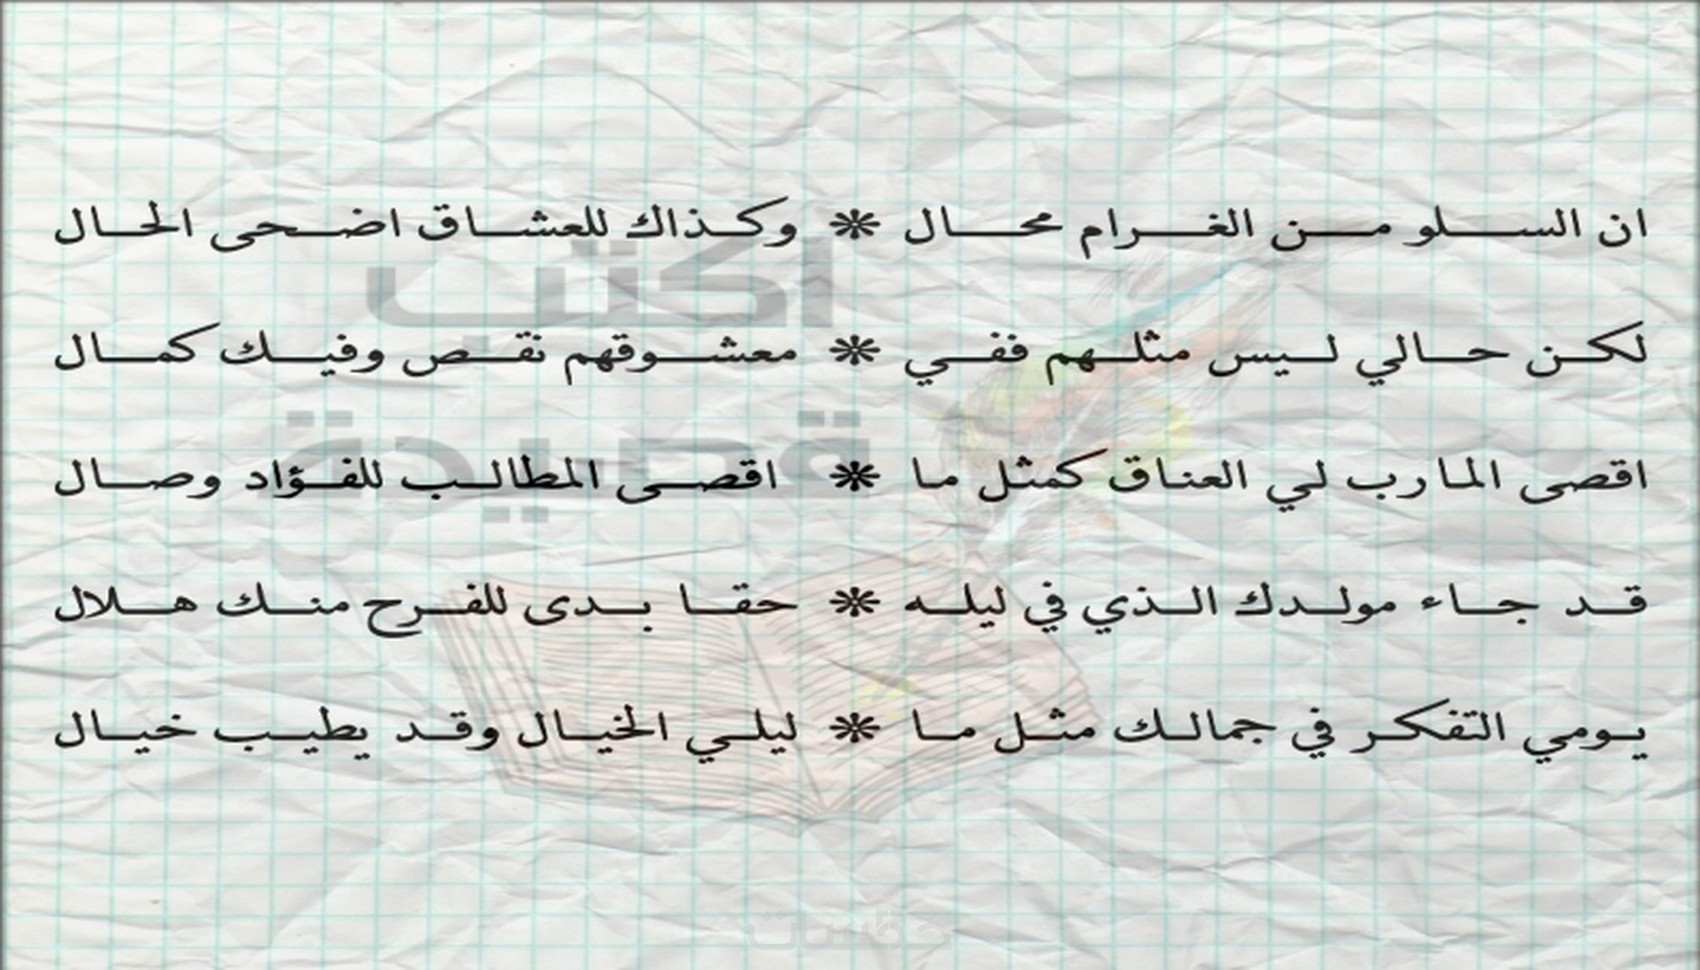 ان السلو من الغرام محال * وكذاك للعشاق اضحى الحال
اكتب
لكن حالي ليس مثلهم ففي * معشوقهم نقص وفيك كمال
قصيدة
اقصى المارب لي العناق كمثل ما * اقصى المطالب للفؤاد وصال
قد جاء مولدك الذي في ليله * حقا بدى للفرح منك هلال
يومي التفكر في جمالك مثل ما * ليلي الخيال وقد يطيب خيال
خمسات